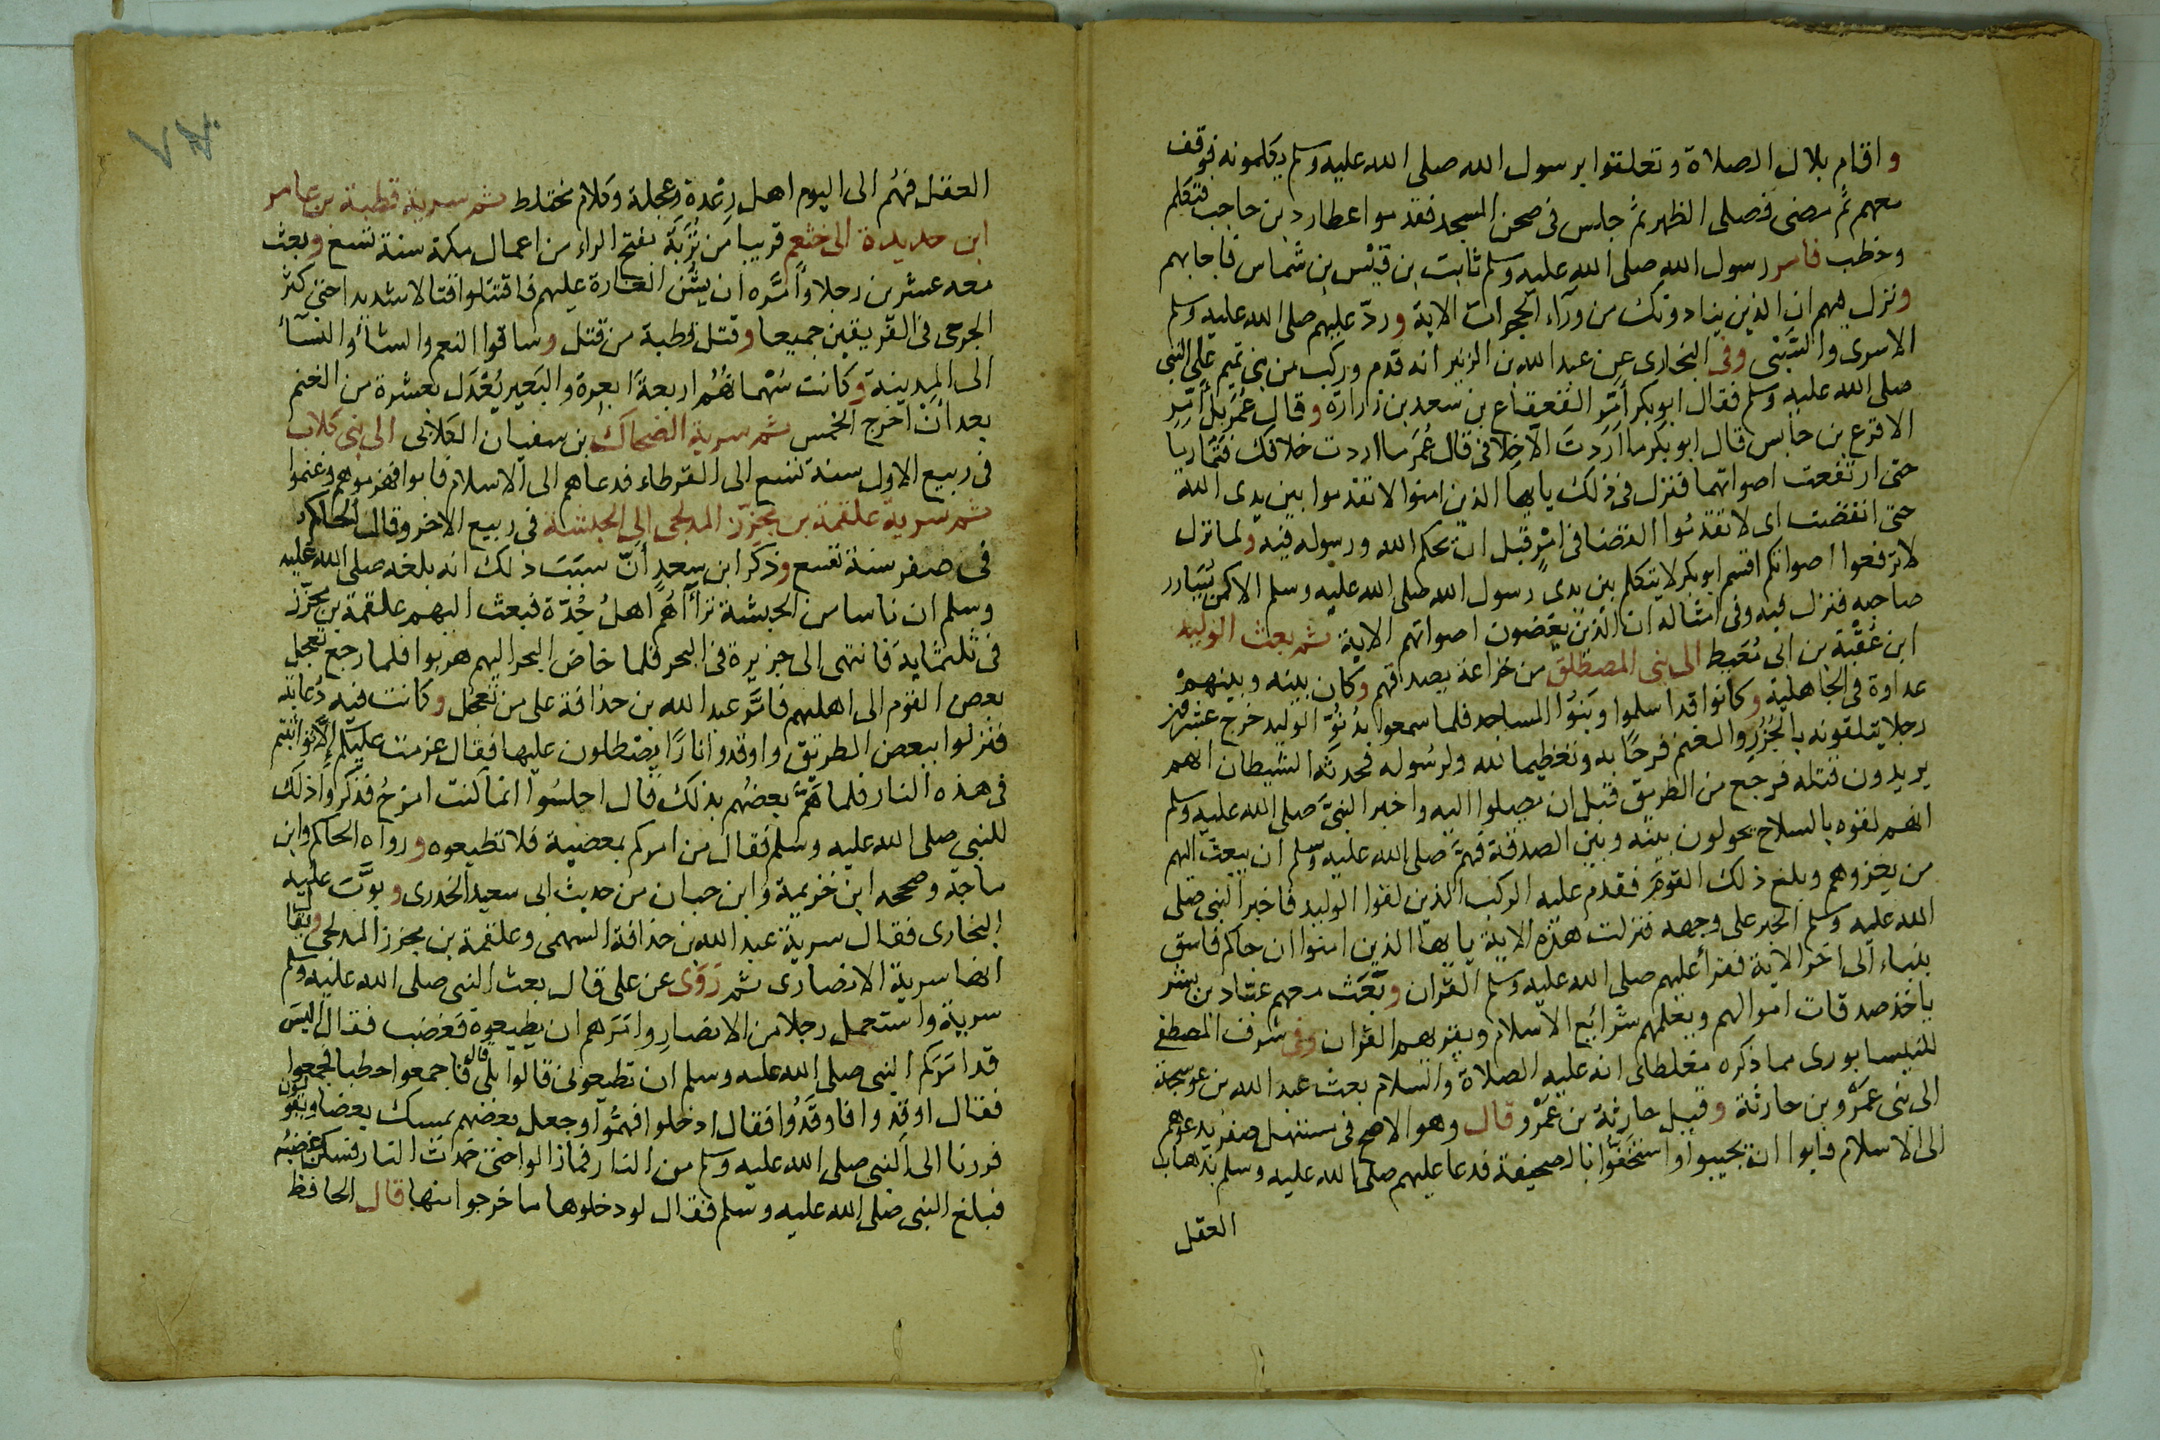 واقام بلال الصلاة وتعلقوا برسول الله صلى الله عليه وسلم يكلمونه فوقف
معهم ثم مضى فصلى الظهر ثم جلس فى صحن المسجد فقدموا عطارد بن حاجب فتكلم
وخطب فامر رسول الله صلى الله عليه وسلم ثابت بن قيس بن شماس فاجابهم
ونزل فيهم ان الذين ينادونك من وراء الحجرات الاية ورد عليهم صلى الله عليه وسلم
الاسرى والسبى وفى البخارى عن عبد الله بن الزبير انه قدم وركب من بنى تميم على النبى
صلى الله عليه وسلم فقال ابو بكر أمر القعقاع بن سعد بن زرارة وقال عمر بل أمر
الاقرع بن حابس قال ابو بكر ما اردت الا خلافى قال عمر ما اردت خلافك فتماريا
حتى ارتفعت اصواتهما فنزل فى ذلك يايها الذين امنوا لا تقدموا بين يدى الله
حتى انقضت اى لا تقدموا القضا فى امر قبل ان يحكم الله ورسوله فيه ولما نزل
لا ترفعوا اصواتكم اقسم ابو بكر لا يتكلم بين يدى رسول الله صلى الله عليه وسلم الا كمن يسارر
صاحبه فنزل فيه وفى امثاله ان الذين يغضون اصواتهم الاية ثم بعث الوليد
ابن عقبة بن ابى معيط الى بنى المصطلق من خزاعة يصدقهم وكان بينه وبينهم
عداوة فى الجاهلية وكانوا قد اسلموا وبنوا المساجد فلما سمعوا بدنو الوليد خرج عشرون
رجلا يتلقونه بالجزر والغنم فرحا به وتعظيما لله ولرسوله فحدثه الشيطان انهم
يريدون قتله فرجع من الطريق قبل ان يصلوا اليه واخبر النبى صلى الله عليه وسلم
انهم لقوه بالسلاح يحولون بينه وبين الصدقة فهم صلى الله عليه وسلم ان يبعث اليهم
من يغزوهم وبلغ ذلك القوم فقدم عليه الركب الذين لقوا الوليد فاخبر النبى صلى
الله عليه وسلم الخبر على وجهه فنزلت هذه الاية يايها الذين امنوا ان جاكم فاسق
بنباء الى اخر الاية فقرأ عليهم صلى الله عليه وسلم القران وبعث معهم عباد بن بشر
ياخذ صدقات اموالهم ويعلمهم شرائع الاسلام ويقريهم القران وفى شرف المصطفى
للنيسابورى مما ذكره مغلطاى انه عليه الصلاة والسلام بعث عبد الله بن عوسجة
الى بنى عمرو بن حارثة وقيل حارثة بن عمرو قال وهو الاصح فى مستهل صفر يدعوهم
الى الاسلام فابوا ان يجيبوا واستخفوا بالصحيفة فدعا عليهم صلى الله عليه وسلم بذهاب
العقل
العقل فهم الى اليوم اهل رعدة وعجلة وكلام مختلط ثم سرية قطبة بن عامر
ابن حديدة الى خثعم قريبا من تربة بفتح الراء من اعمال مكة سنة تسع وبعث
معه عشرين رجلا وأمره ان يشن الغارة عليهم فاقتتلوا قتالا شديدا حتى كثر
الجرحى فى الفريقين جميعا وقتل قطبة من قتل وساقوا النعم والشاء والنساء
الى المدينة وكانت سهمانهم اربعة ابعرة والبعير يعدل بعشرة من الغنم
بعد أن اخرج الخمس ثم سرية الضحاك بن سفيان الكلابى الى بنى كلاب
فى ربيع الاول سنة تسع الى القرطاء فدعاهم الى الاسلام فابوا فهزموهم وغنموا
ثم سرية علقمة بن مجزز المدلجى الى الحبشة فى ربيع الاخر وقال الحاكم
فى صفر سنة تسع وذكر ابن سعد أن سبب ذلك انه بلغه صلى الله عليه
وسلم ان ناسا من الحبشة تراآهم اهل جدة فبعث اليهم علقمة بن مجزز
فى ثلثماية فانتهى الى جزيرة فى البحر فلما خاض البحر اليهم هربوا فلما رجع تعجل
بعض القوم الى اهليهم فامر عبد الله بن حذافة على من تعجل وكانت فيه دعابة
فنزلوا ببعض الطريق واوقدوا نارا يصطلون عليها فقال عزمت عليكم إلا تواثبتم
فى هذه النار فلما هم بعضهم بذلك قال اجلسوا انما كنت امزح فذكروا ذلك
للنبى صلى الله عليه وسلم فقال من امركم بمعصية فلا تطيعوه ورواه الحاكم وابن
ماجة وصححه ابن خزيمة وابن حبان من حديث ابى سعيد الخدرى وبوب عليه
البخارى فقال سرية عبد الله بن حذافة السهمى وعلقمة بن مجزز المدلجى ويقال
انها سرية الانصارى ثم روى عن على قال بعث النبى صلى الله عليه وسلم
سرية واستعمل رجلا من الانصار وامرهم ان يطيعوه فغضب فقال أليس
قد امركم النبى صلى الله عليه وسلم ان تطيعونى قالوا بلى قال فاجمعوا حطبا فجمعوا
فقال اوقدوا فاوقدوا فقال ادخلوا فهموا وجعل بعضهم يمسك بعضا ويقولون
فررنا الى النبى صلى الله عليه وسلم من النار فما زالوا حتى خمدت النار فسكن غضبه
فبلغ النبى صلى الله عليه وسلم فقال لو دخلوها ما خرجوا منها قال الحافظ